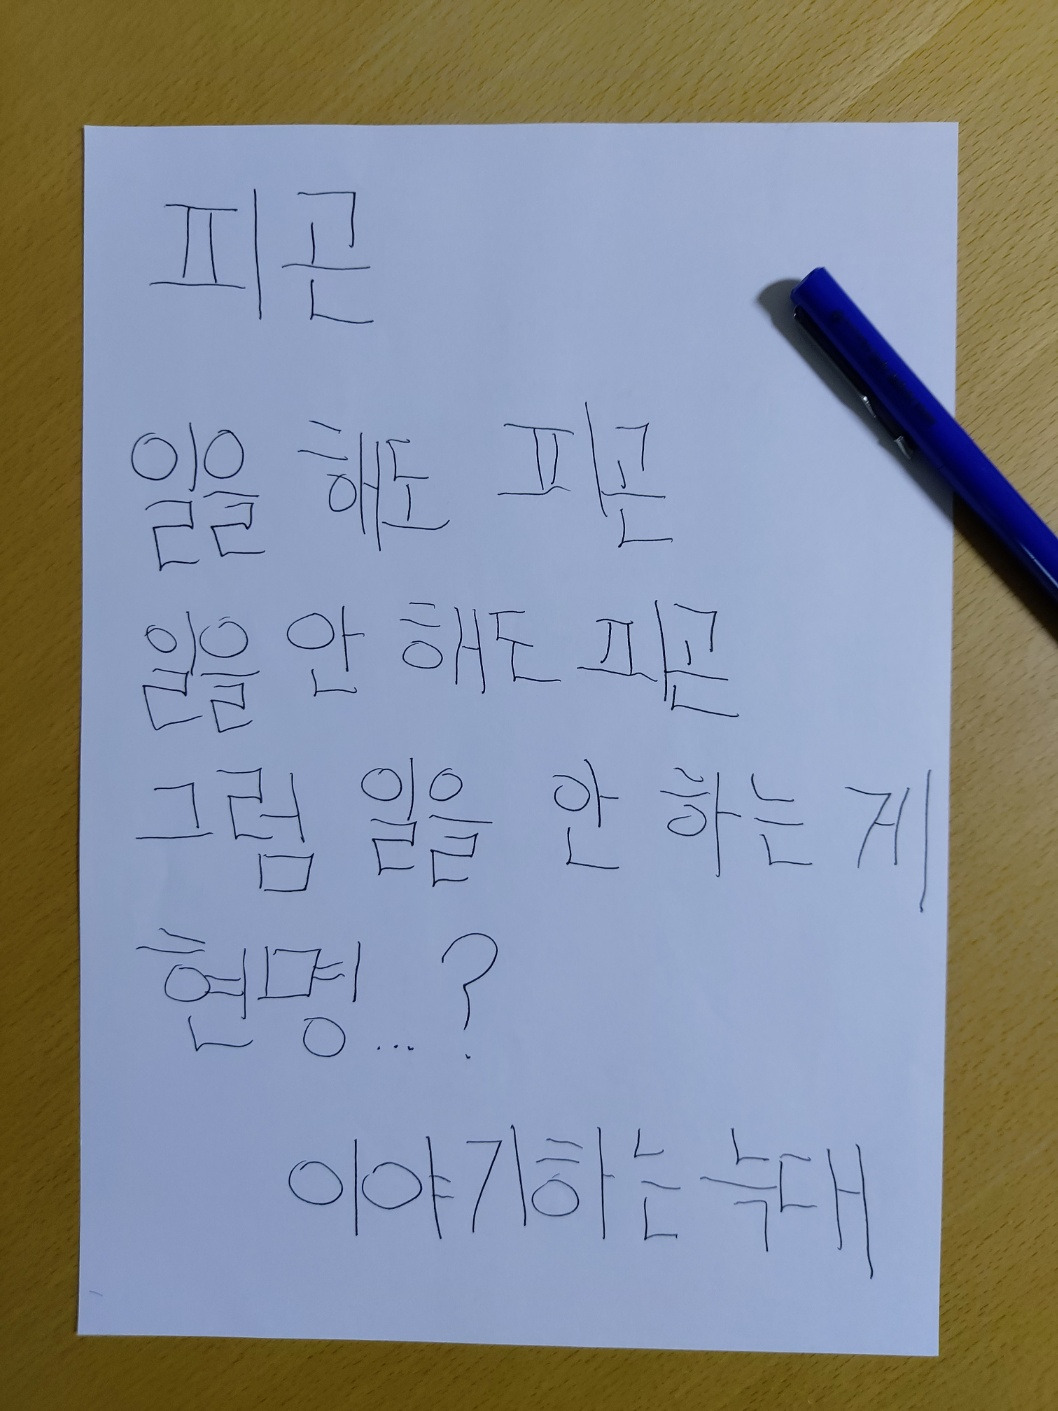 피곤
일을 해도 피곤
일을 안 해도 피곤
그럼 일을 안 하는 게
현명...?
이야기하는 늑대